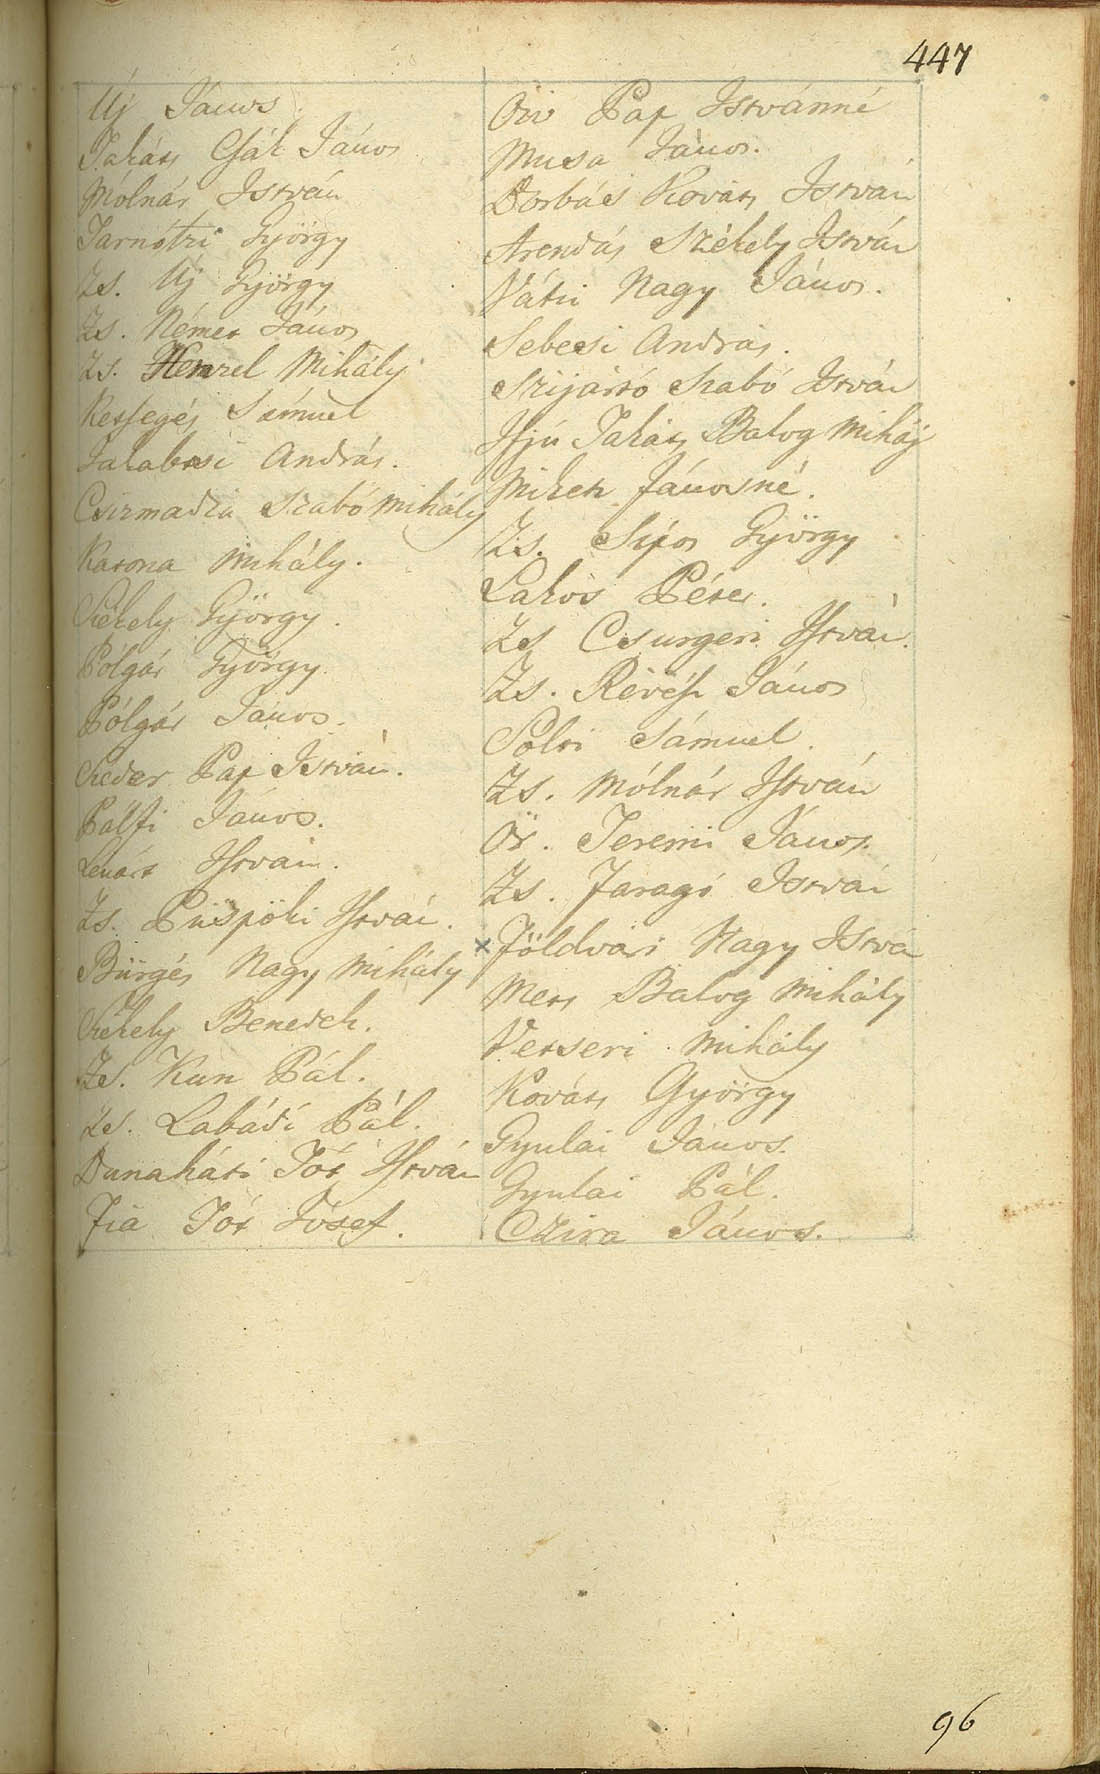 447
Új János
Takáts Csák János
Mólnár István
Tarnótzi György
Zs. Új György
Zs. Német János
Zs. Henzel Mihály
Ketsegés Sámuel
András.
Csizmadia Szabó Mihály
Katona Mihály.
Székely György.
Pólgár György
Pólgár János.
Szeder Pap István.
Pálfi János.
Lénárt István.
Zs. Püspöki István.
Bürgés Nagy Mihály
Székely Benedek.
Zs. Kun Pál.
Zs. Labádi Pál.
Dunaháti Tót István
Fia Tót Jósef.
Özv Pap Istvánné
Musa János.
Dorbás Kováts István
Arendás Székely István
Váti Nagy János.
Sebesi András.
Szijártó Szabó István
Ifjú Takáts Balog Mihály
Miketz Jánosné.
Zs. Sipos György
Lakos Péter.
Zs Csurgeri István.
Zs. Révész János
Sólvi Sámuel.
Zs. Mólnár István
Ör. Jeremi János.
Zs. Faragó István
x Földvári Nagy István
Mets Balog Mihály
Vetseri Mihály
Kováts György
Gyulai János.
Gyulai Pál.
Czira János.
96